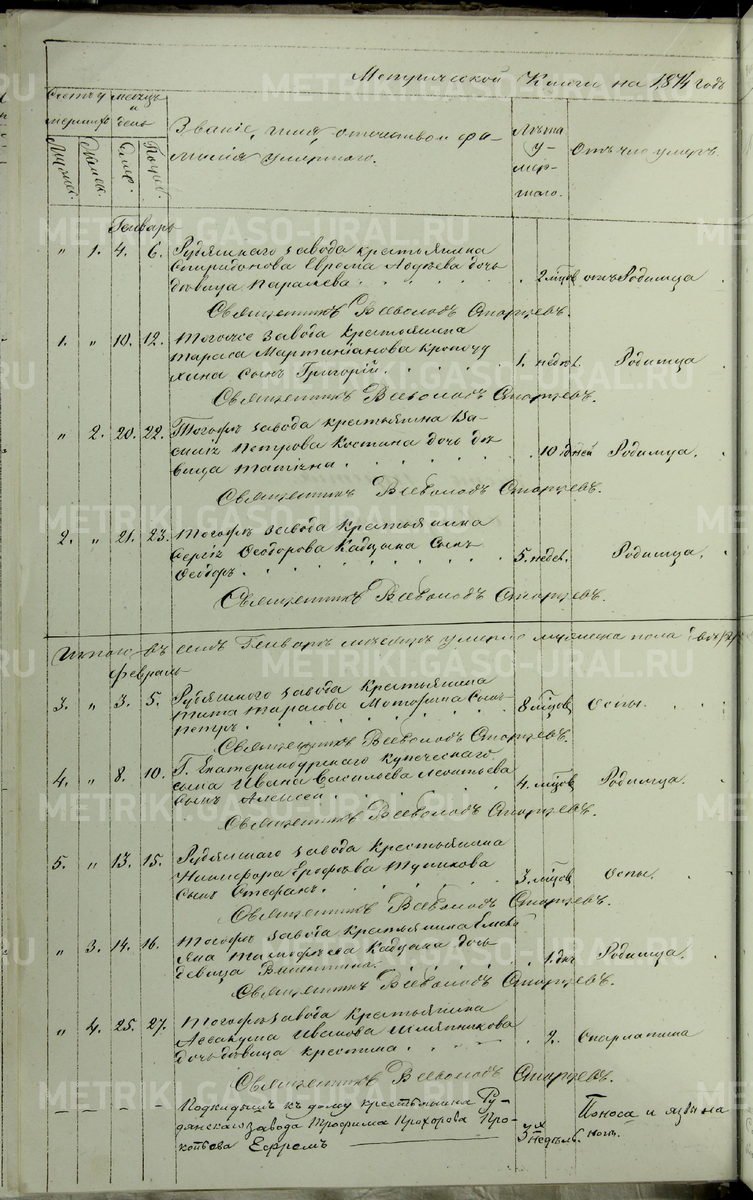 Метрической Книги на 1874 годъ
Счетъ умершихъ
Мѣсяцъ и день
Званіе, имя, отчество и фамилія умершаго.
Лѣта умершаго.
Отъ чего умеръ.
Мужск. Женск. Смер. Погреб.
Генварь
" 1. 4. 6. Рудянскаго завода крестьянина
Спиридонова Ефрема дочь
дѣвица 2 мѣсяцовъ отъ Родимца
Священникъ Всеволодъ Старцевъ.
1. " 10. 12. Тогоже завода крестьянина
Тараса Мартиніанова
сынъ Григорій. 1. недѣл. Родимца
Священникъ Всеволодъ Старцевъ.
" 2. 20. 22. Тогожъ завода крестьянина Ва-
силія Петрова Костина дочь дѣ-
вица Татіяна. 10 дней Родимца.
Священникъ Всеволодъ Старцевъ.
2. " 21. 23. Тогожъ завода крестьянина
Сергія Ѳеодорова Кадцына сынъ
Ѳеодоръ. 5. недѣл. Родимца.
Священникъ Всеволодъ Старцевъ.
Итого въ семъ Генварѣ мѣсяцѣ умерло мужеска пола
Февраль
3. " 3. 5. Рудянскаго завода крестьянина
Тита Тарасова сынъ
Петръ. 8 мѣсяцовъ Оспы.
Священникъ Всеволодъ Старцевъ.
4. " 8. 10. Г. Екатеринбургскаго купеческаго
сына Ивана Васильева Леонтьева
сынъ Алексей. 4. мѣсяцовъ Родимца.
Священникъ Всеволодъ Старцевъ.
5. " 13. 15. Рудянскаго завода крестьянина
Никифора Ерофѣева Тупикова
сынъ Стефанъ. 3. мѣсяцовъ Оспы.
Священникъ Всеволодъ Старцевъ.
" 3. 14. 16. Тогожъ завода крестьянина Емель-
яна Тимофѣева Кадцына дочь
дѣвица 1. дня Родимца.
Священникъ Всеволодъ Старцевъ.
" 4. 25. 27. Тогожъ завода крестьянина
Аввакума Иванова Шляпникова
дочь дѣвица Христина. 2. Скарлатина
Священникъ Всеволодъ Старцевъ.
Подкидышъ къ дому крестьянина Ру-
дянскаго завода Трофима Прохорова Про-
копьева Ефремъ 3х недѣль. Поноса и язвы на
ногѣ.
METRIKI.GASO-URAL.RU